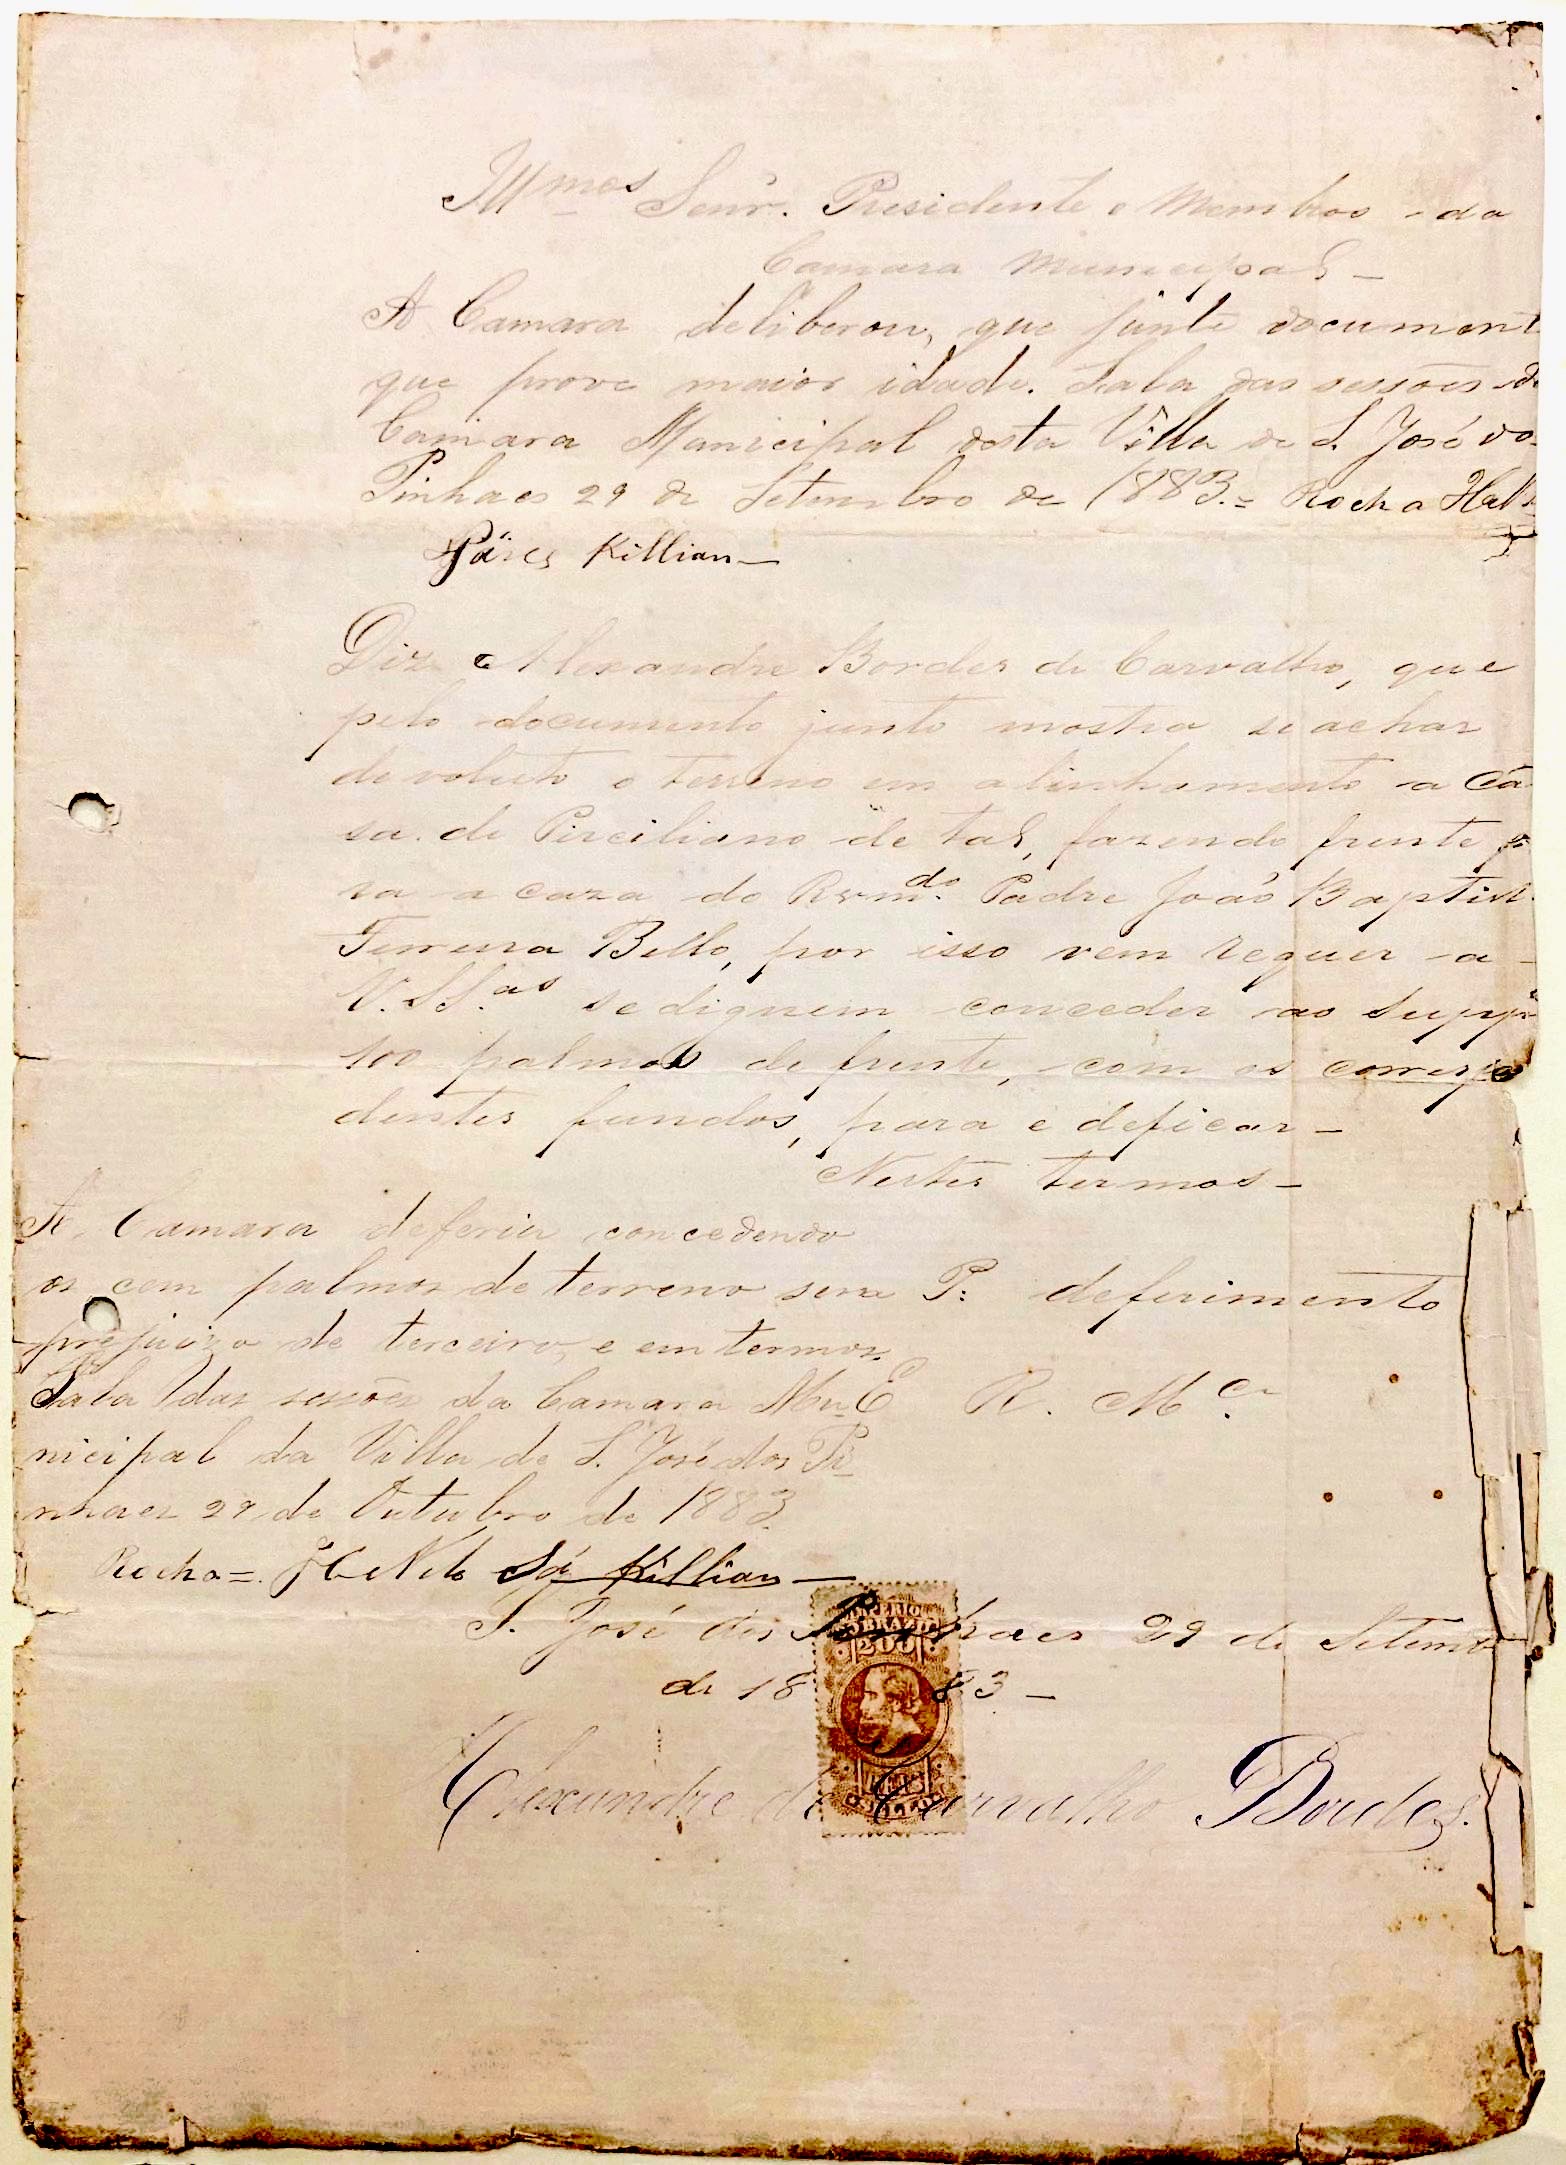 Illmos Senr. Presidente e Membros da
Camara Municipal –
A Camara deliberou, que junte document
que prove maior idade. Sala das sessões d
Camara Municipal desta Villa de S. José do
Pinhaes 29 de Setembro de 1883.= Rocha
Killian –
Diz Alexandre Bordes de Carvalho, que
pelo documento junto mostra se achar
devoluto o terreno em alinhamento a Ca
sa de Pirciliano de tal, fazendo frente p
ra a caza do Rvmdo. Padre João Baptist
Ferreira Bello, por isso vem requer a
V. SS.as se dignem conceder ao Suppe
100 palmos de frente, com os correspo
dentes fundos, para edeficar –
Nestes termos –
P: deferimento
E R. Mce.
A Camara deferiu concedendo
os cem palmos de terreno sem
prejuizo de terceiro, e em termos.
Sala das sessões da Camara Mu
nicipal da Villa de S. José dos Pi
nhaes 29 de Outubro de 1883.
Rocha =. Sá Killian –
S. José dos Pinhaes 29 de Setemb
de 1883 –
Alexandre de Carvalho Bordes.
200
REIS